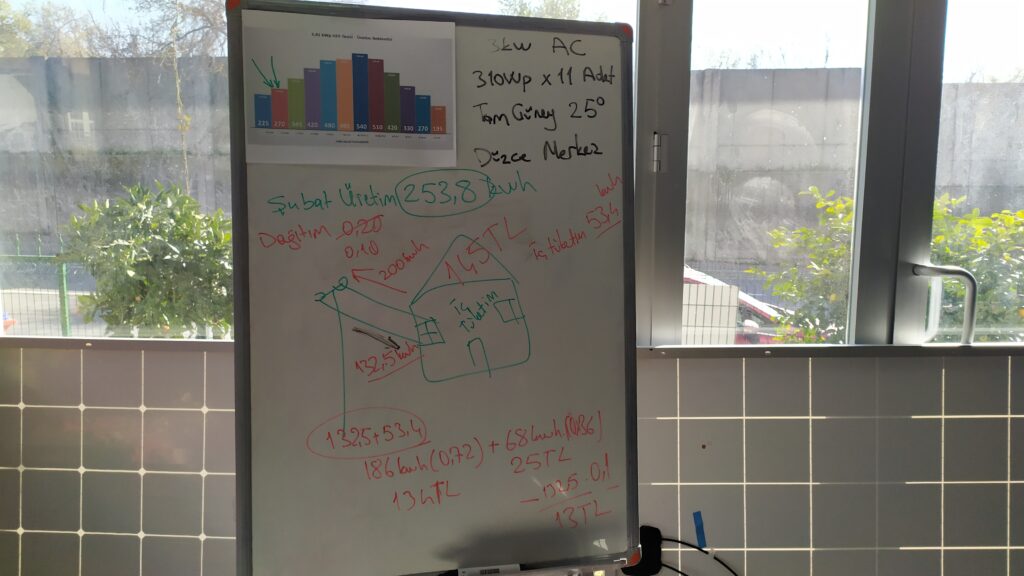 225 270 345 420 480 485 540 510 420 330 270 195
3kw AC
310Wp x 11 Adet
Tam Güney 25°
Düzce Merkez
Şubat Üretim 253,8 kwh
Dağıtım 0,20
0,10
200 kwh
145TL
İç tüketim 53,4 kwh
İç Tüketim
132,5 kwh
132,5+53,4
186 kwh (0,72) + 68 kwh. (0,36)
134TL
25TL
- 132,5 . 0,1
13TL